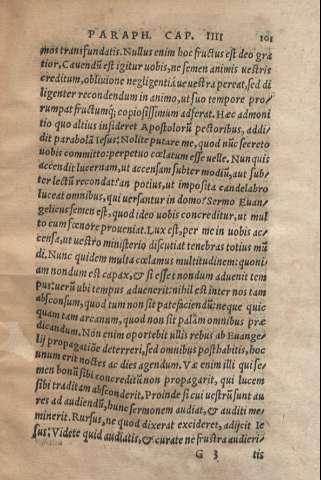 PARAPH. CAP. IIII 101
mos transfundatis. Nullus enim hoc fructus est deo gra
tior, Cauendũ est igitur uobis, ne semen animis uestris
creditum, obliuione negligentiáue uestra pereat, sed di
ligenter recondendum in animo, ut suo tempore pro
rumpat fructumq; copiosissimum adferat. Hæc admoni
tio quo altius insideret Apostolorũ pectoribus, addi
dit parabolã Iesus: Nolite putare me, quod nũc secreto
uobis committo: perpetuo cœlatum esse uelle. Nunquis
accendit lucernam, ut accensam subter modiũ, aut sub
ter lectũ recondat? an potius, ut imposita candelabro
luceat omnibus, qui uersantur in domo? Sermo Euan
gelicus semen est, quod ideo uobis concreditur, ut mul
to cum fœnore proueniat. Lux est, per me in uobis ac
censa, ut uestro ministerio discutiat tenebras totius mũ
di. Nunc quidem multa cœlamus multitudinem: quoni
am nondum est capax, & si esset nondum aduenit tem
pus: uerũ ubi tempus aduenerit: nihil est inter nos tam
absconsum, quod tum non sit patefaciendũ: neque quic
quam tam arcanum, quod non sit palàm omnibus præ
dicandum. Non enim oportebit ullis rebus ab Euange
lij propagatiõe deterreri, sed omnibus posthabitis, hoc
unum erit noctes ac dies agendum. Væ enim illi qui se
men bonũ sibi concreditũ non propagarit, qui lucem
sibi traditam absconderit. Proinde si cui uestrũ sunt au
res ad audiendũ, hunc sermonem audiat, & auditi me
minerit. Rursus, ne quod dixerat excideret, adijcit Ie
sus: Videte quid audiatis, & curate ne frustra audieri
G 3 tis